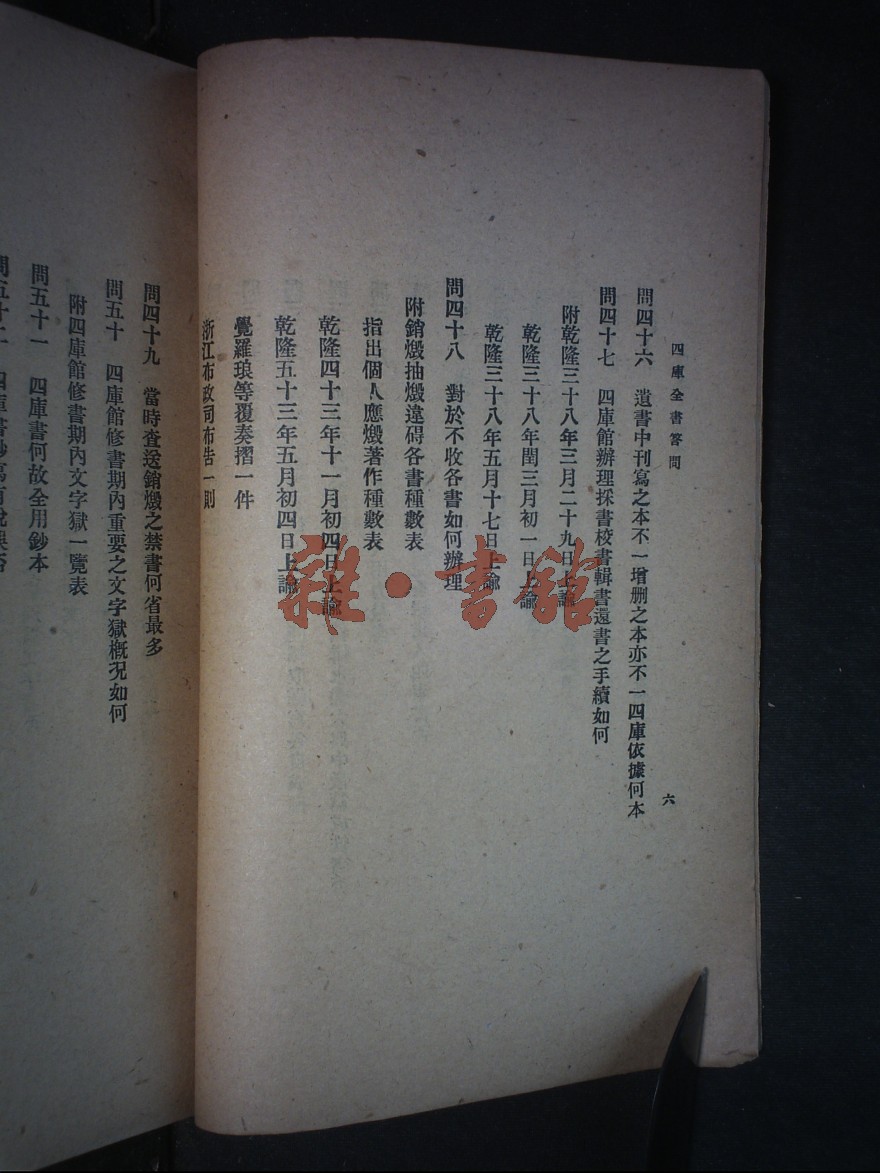 四庫全書答問
六
問四十六　遺書中刊寫之本不一增删之本亦不一四庫依據何本
問四十七　四庫館辦理採書校書輯書還書之手續如何
附乾隆三十八年三月二十九日上諭
乾隆三十八年閏三月初一日上諭
乾隆三十八年五月十七日上諭
問四十八　對於不收各書如何辦理
附銷燬抽燬違碍各書種數表
指出個人應燬著作種數表
乾隆四十三年十一月初四日上諭
乾隆五十三年五月初四日上諭
覺羅琅等覆奏摺一件
浙江布政司布告一則
問四十九　當時查送銷燬之禁書何省最多
問五十　四庫館修書期內重要之文字獄概况如何
附四庫館修書期內文字獄一覽表
問五十一　四庫書何故全用鈔本
問五十二　四庫書鈔寫有脫誤否
雜·書館